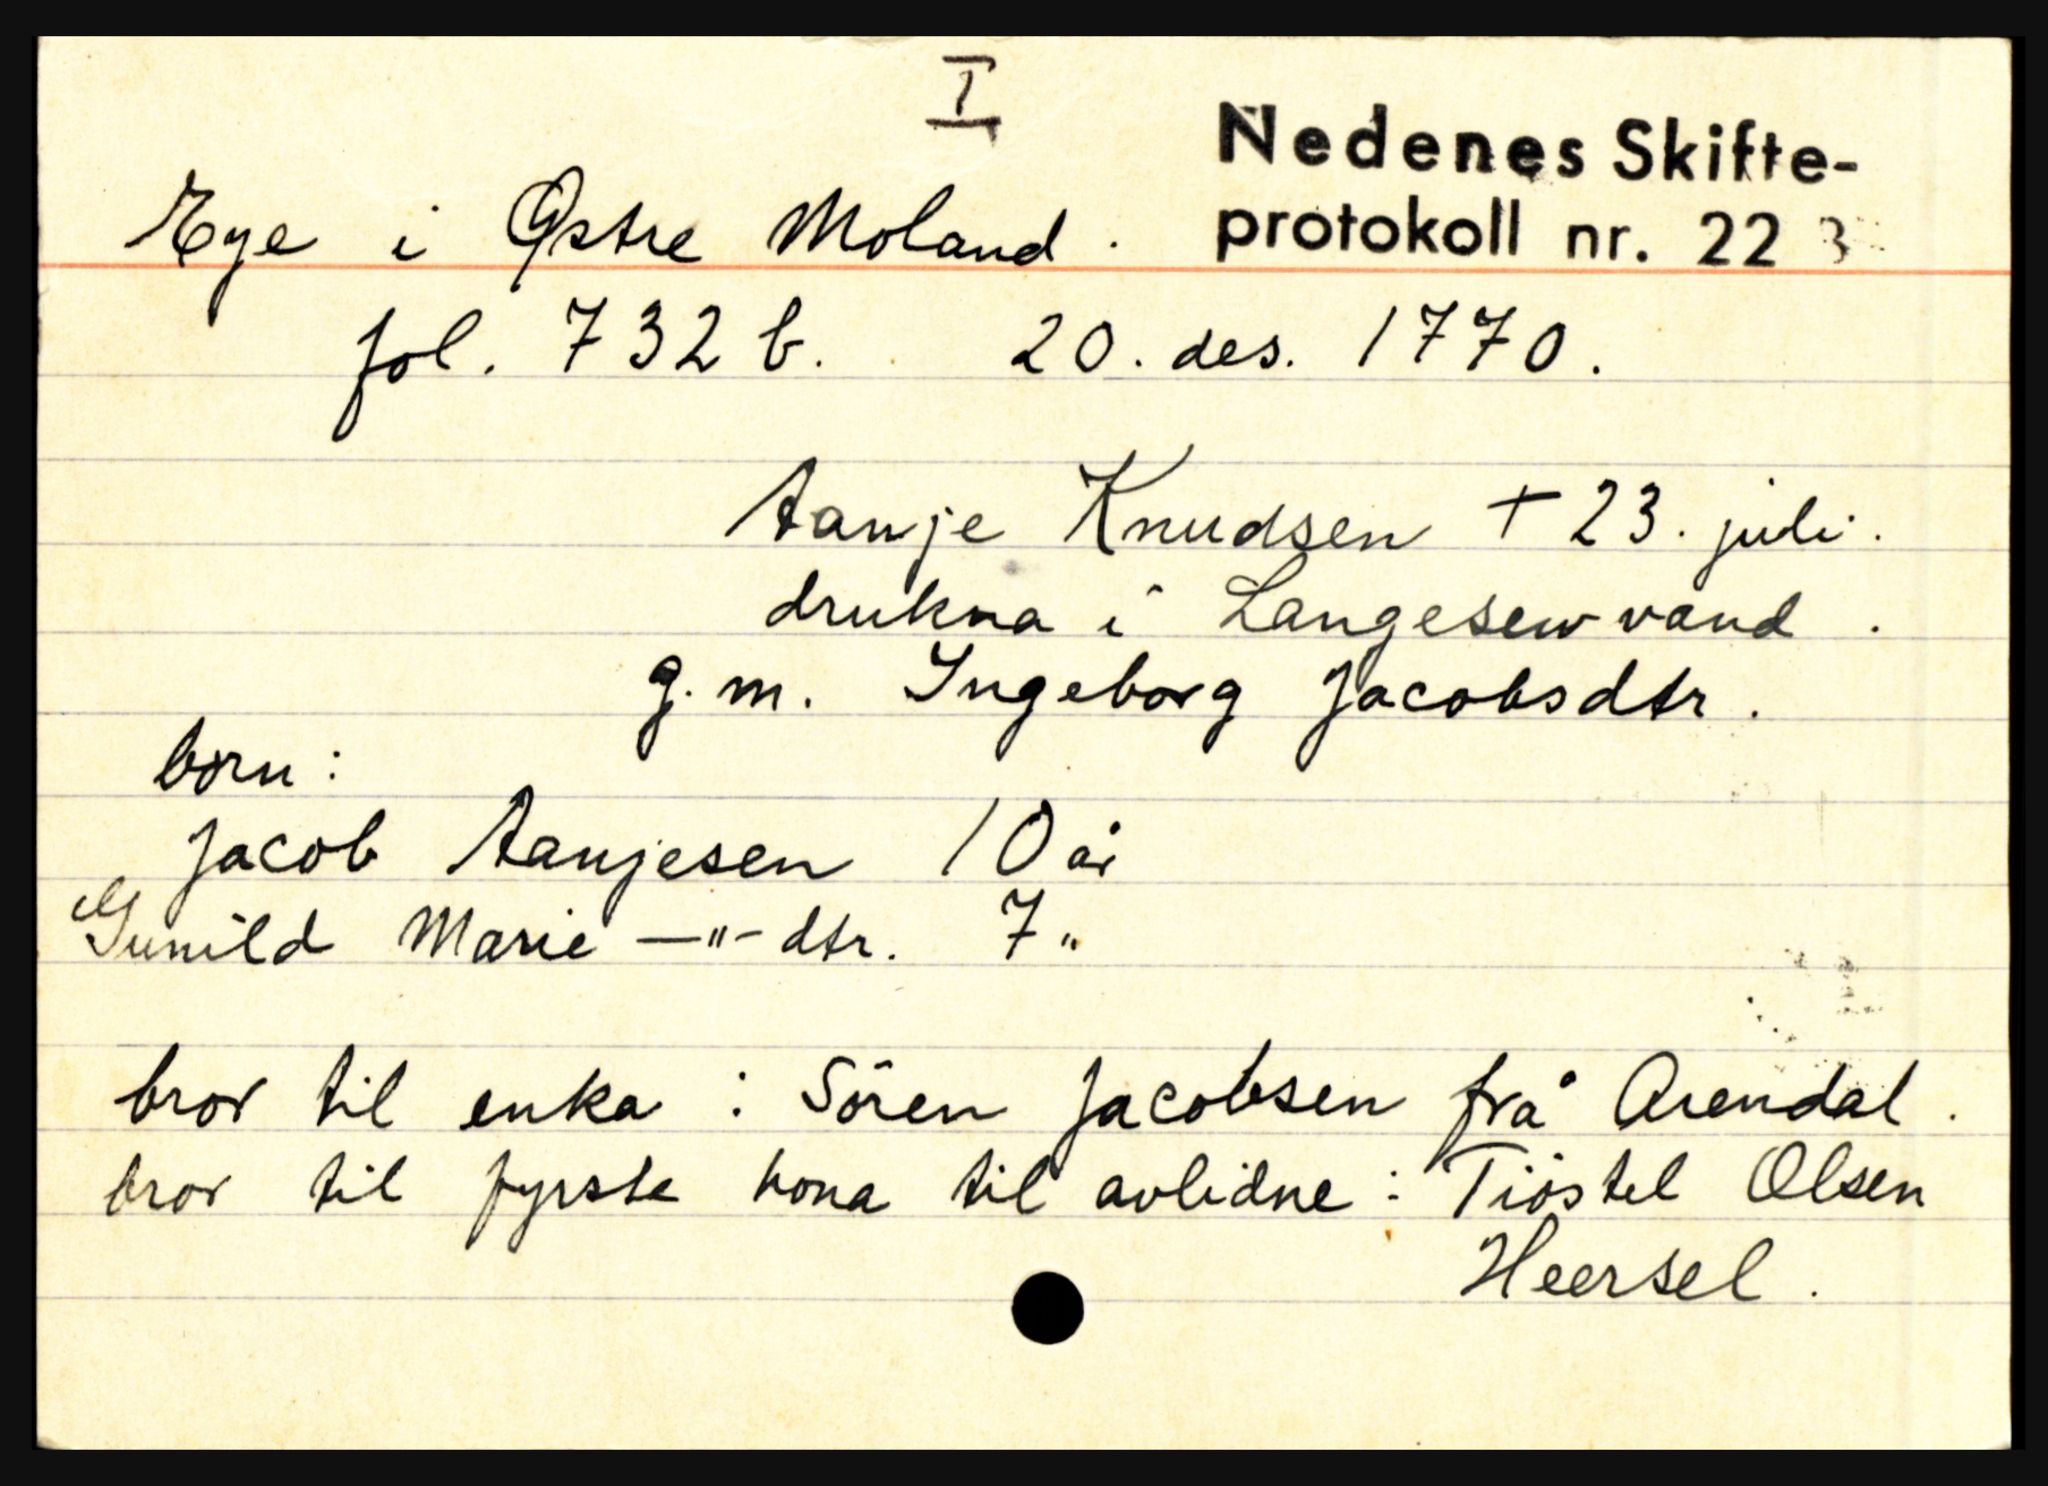 I
Nedenes Skifte-
protokoll nr. 22
Eye i Østre Moland.
fol. 732 b. 20. des. 1770.
Aanje Knudsen + 23. juli.
drukna i Langesewvand.
g. m. Ingeborg Jacobsdtr.
born:
Jacob Aanjesen 10 år
Gunild Marie —"— dtr. 7 "
bror til enka : Sören Jacobsen frå Arendal.
bror til fyrste kona til avlidne : Tiöstel Olsen
Heersel.